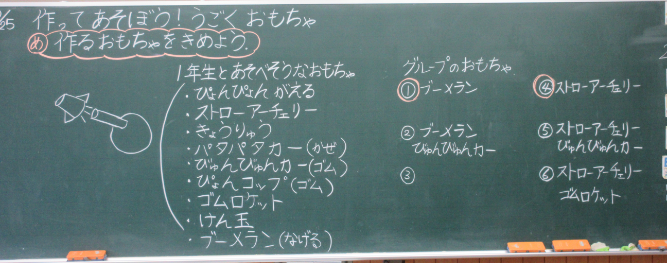 /25 作ってあそぼう！うごくおもちゃ
め 作るおもちゃをきめよう.
1年生とあそべそうなおもちゃ
・ぴょんぴょんがえる
・ストローアーチェリー
・きょうりゅう
・パタパタカー(かぜ)
・びゅんびゅんカー(ゴム)
・ぴょんコップ(ゴム)
・ゴムロケット
・けん玉
・ブーメラン(なげる)
グループのおもちゃ
① ブーメラン
② ブーメラン
びゅんびゅんカー
③
④ ストローアーチェリー
⑤ ストローアーチェリー
びゅんびゅんカー
⑥ ストローアーチェリー
ゴムロケット